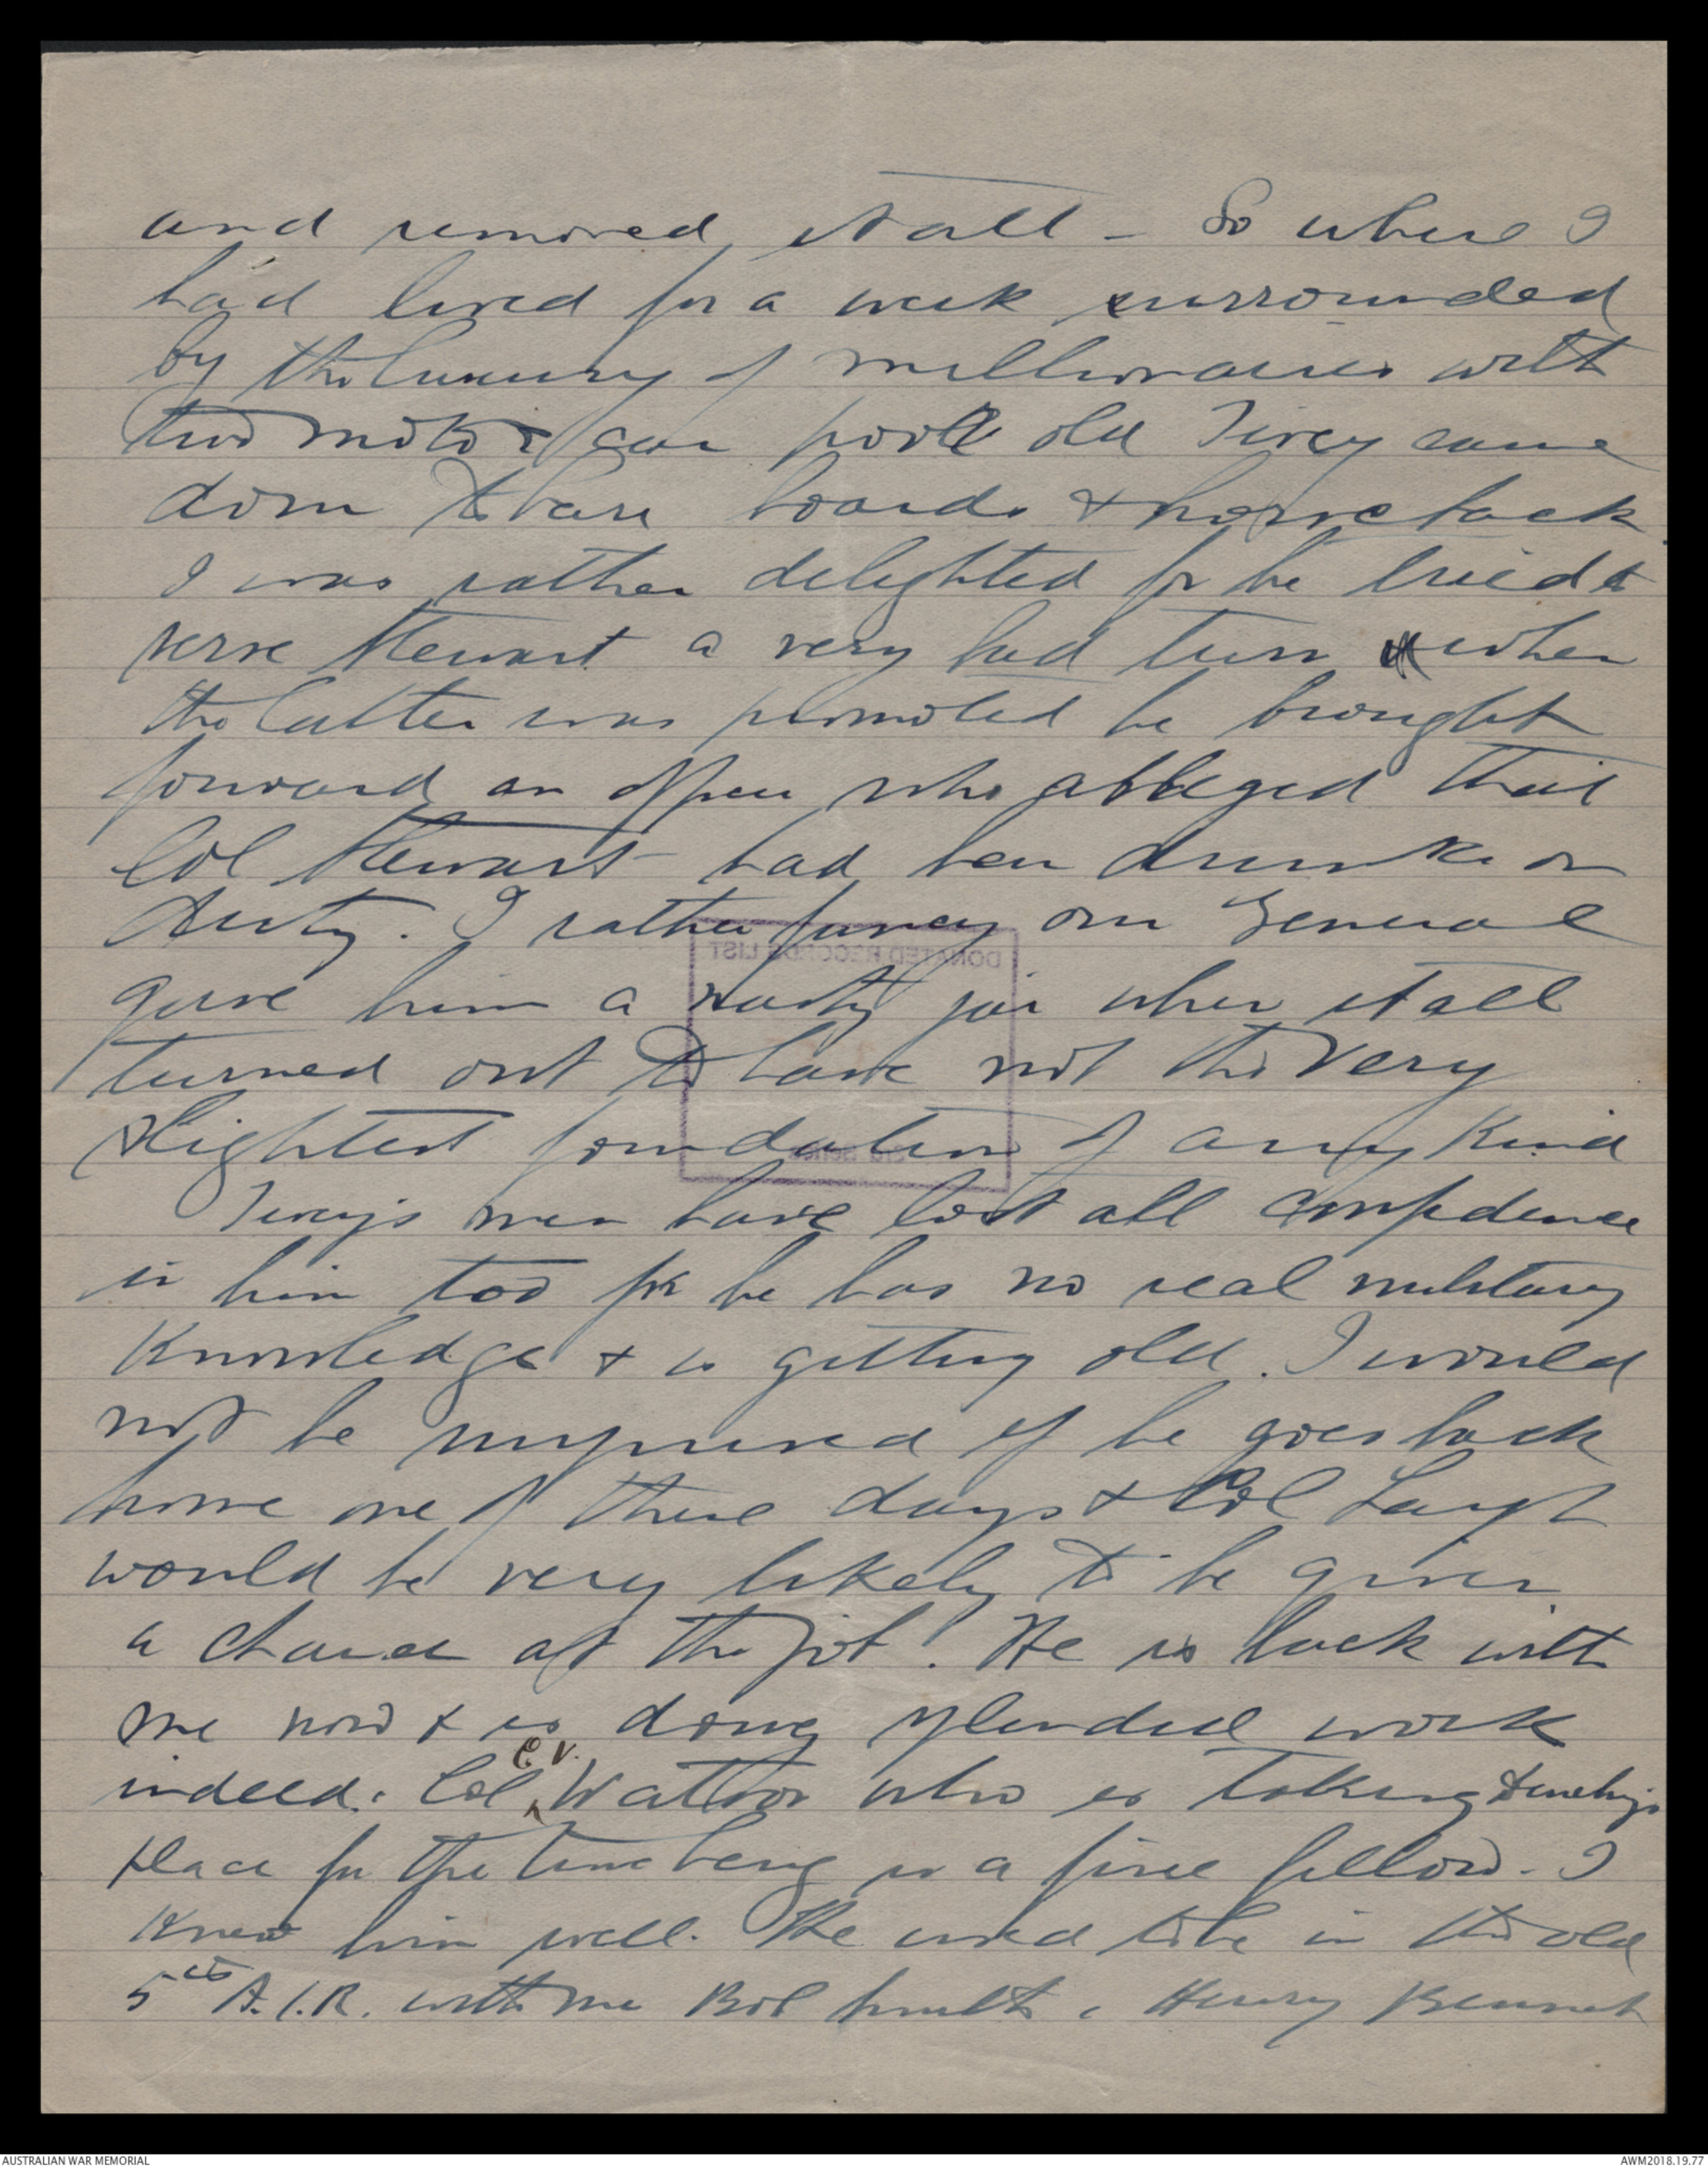 and removed it all - So where I
had lived for a week surrounded
by the luxury of millionaires with
two motor cars poor old Tivey came
down to bare boards & horseback
I was rather delighted for he tried to
serve Stewart a very bad turn when
the latter was promoted he brought
forward an officer who alleged that
Col Stewart had been drunk on
duty. I rather fancy our General
gave him a nasty jar when it all
turned out to have not the very
slightest foundation of any kind
Tivey's men have lost all confidence
in him too for he has no real military
knowledge & is getting old. I would
not be surprised if he goes back
home one of these days & Col Layh
would be very likely to be given
a chance at the job. He is back with
me now & is doing splendid work
indeed. Col C.V. Watson who is taking
place for the time being is a fine fellow. I
knew him well. He used to be in the old
5th A.I.R. with me Bob Smith, Henry Bennett
DONATED RECORDS LIST
3rd Series
AUSTRALIAN WAR MEMORIAL
AWM2018.19.77